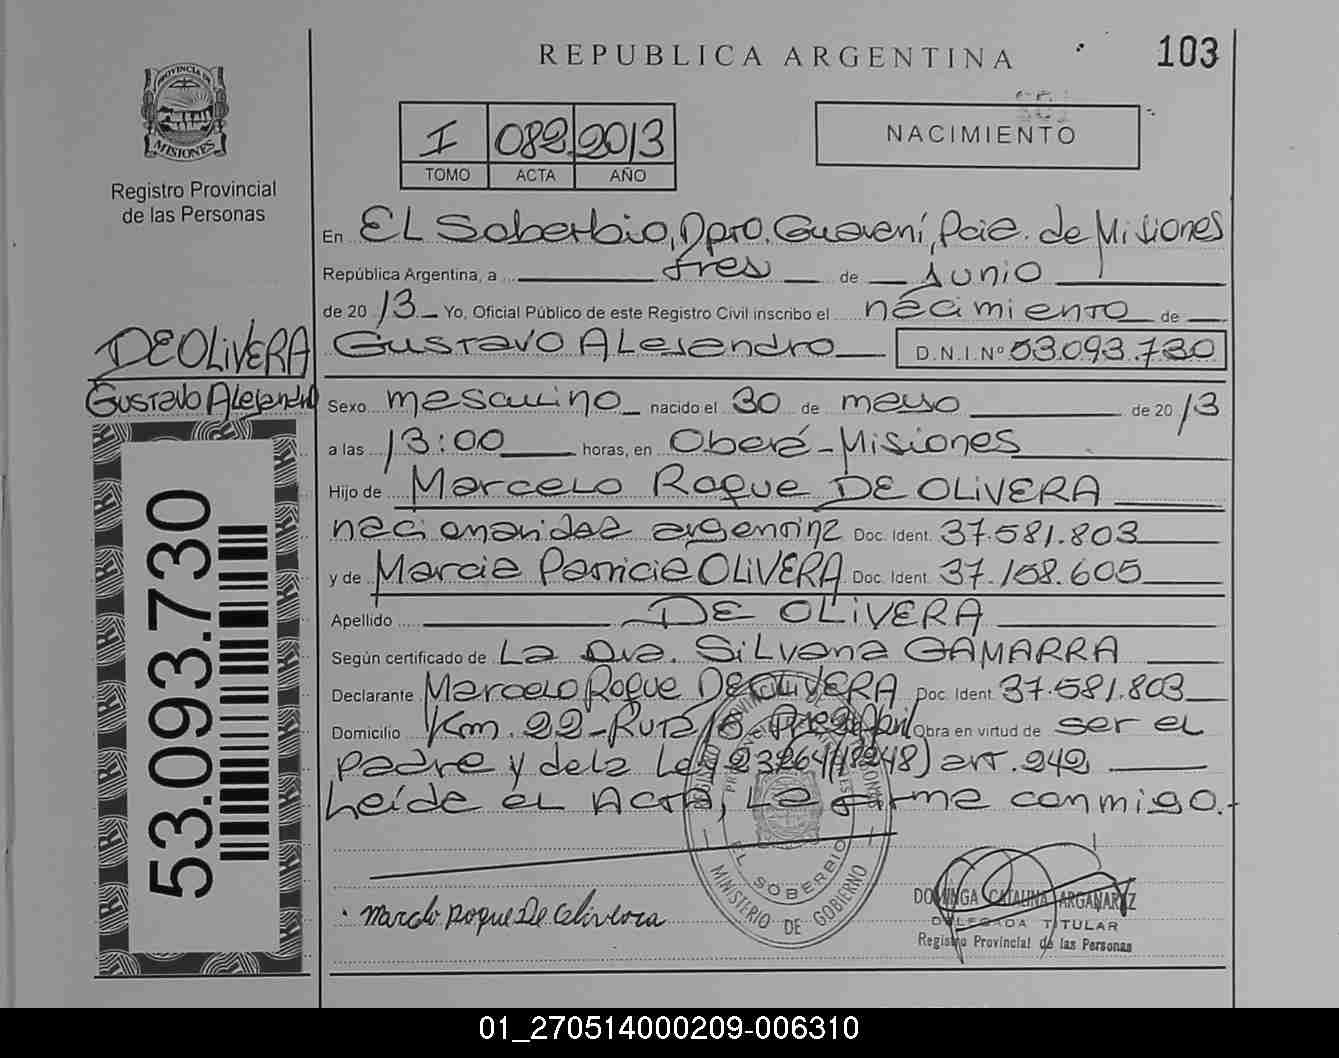 REPUBLICA ARGENTINA
103
PROVINCIA DE
MISIONES
Registro Provincial
de las Personas
I 082 2013
TOMO ACTA AÑO
NACIMIENTO
En EL Soberbio, Dpto. Guaraní, Pcia. de Misiones
República Argentina, a tres de Junio
de 20 13 Yo, Oficial Público de este Registro Civil inscribo el nacimiento de
Gustavo Alejandro D.N.I.Nº 53.093.730
DE OLIVERA
Gustavo Alejandro
Sexo masculino nacido el 30 de mayo de 20 13
a las 13:00 horas, en Oberá - Misiones
Hijo de Marcelo Roque DE OLIVERA
nacionalidad argentina Doc. Ident. 37.581.803
y de Marcia Patricia OLIVERA Doc. Ident. 37.158.605
Apellido DE OLIVERA
Según certificado de La Dra. Silvana GAMARRA
Declarante Marcelo Roque DE OLIVERA Doc. Ident. 37.581.803
Domicilio Km. 22 - Ruta Obra en virtud de ser el
padre y de la Ley 23264 (18248) art. 242
Leída el Acta, la firma conmigo.
53.093.730
EL SOBERBIO
MINISTERIO DE GOBIERNO
Marcelo Roque De Olivera
DOMINGA CATALINA ARGAÑARAZ
DELEGADA TITULAR
Registro Provincial de las Personas
01_270514000209-006310